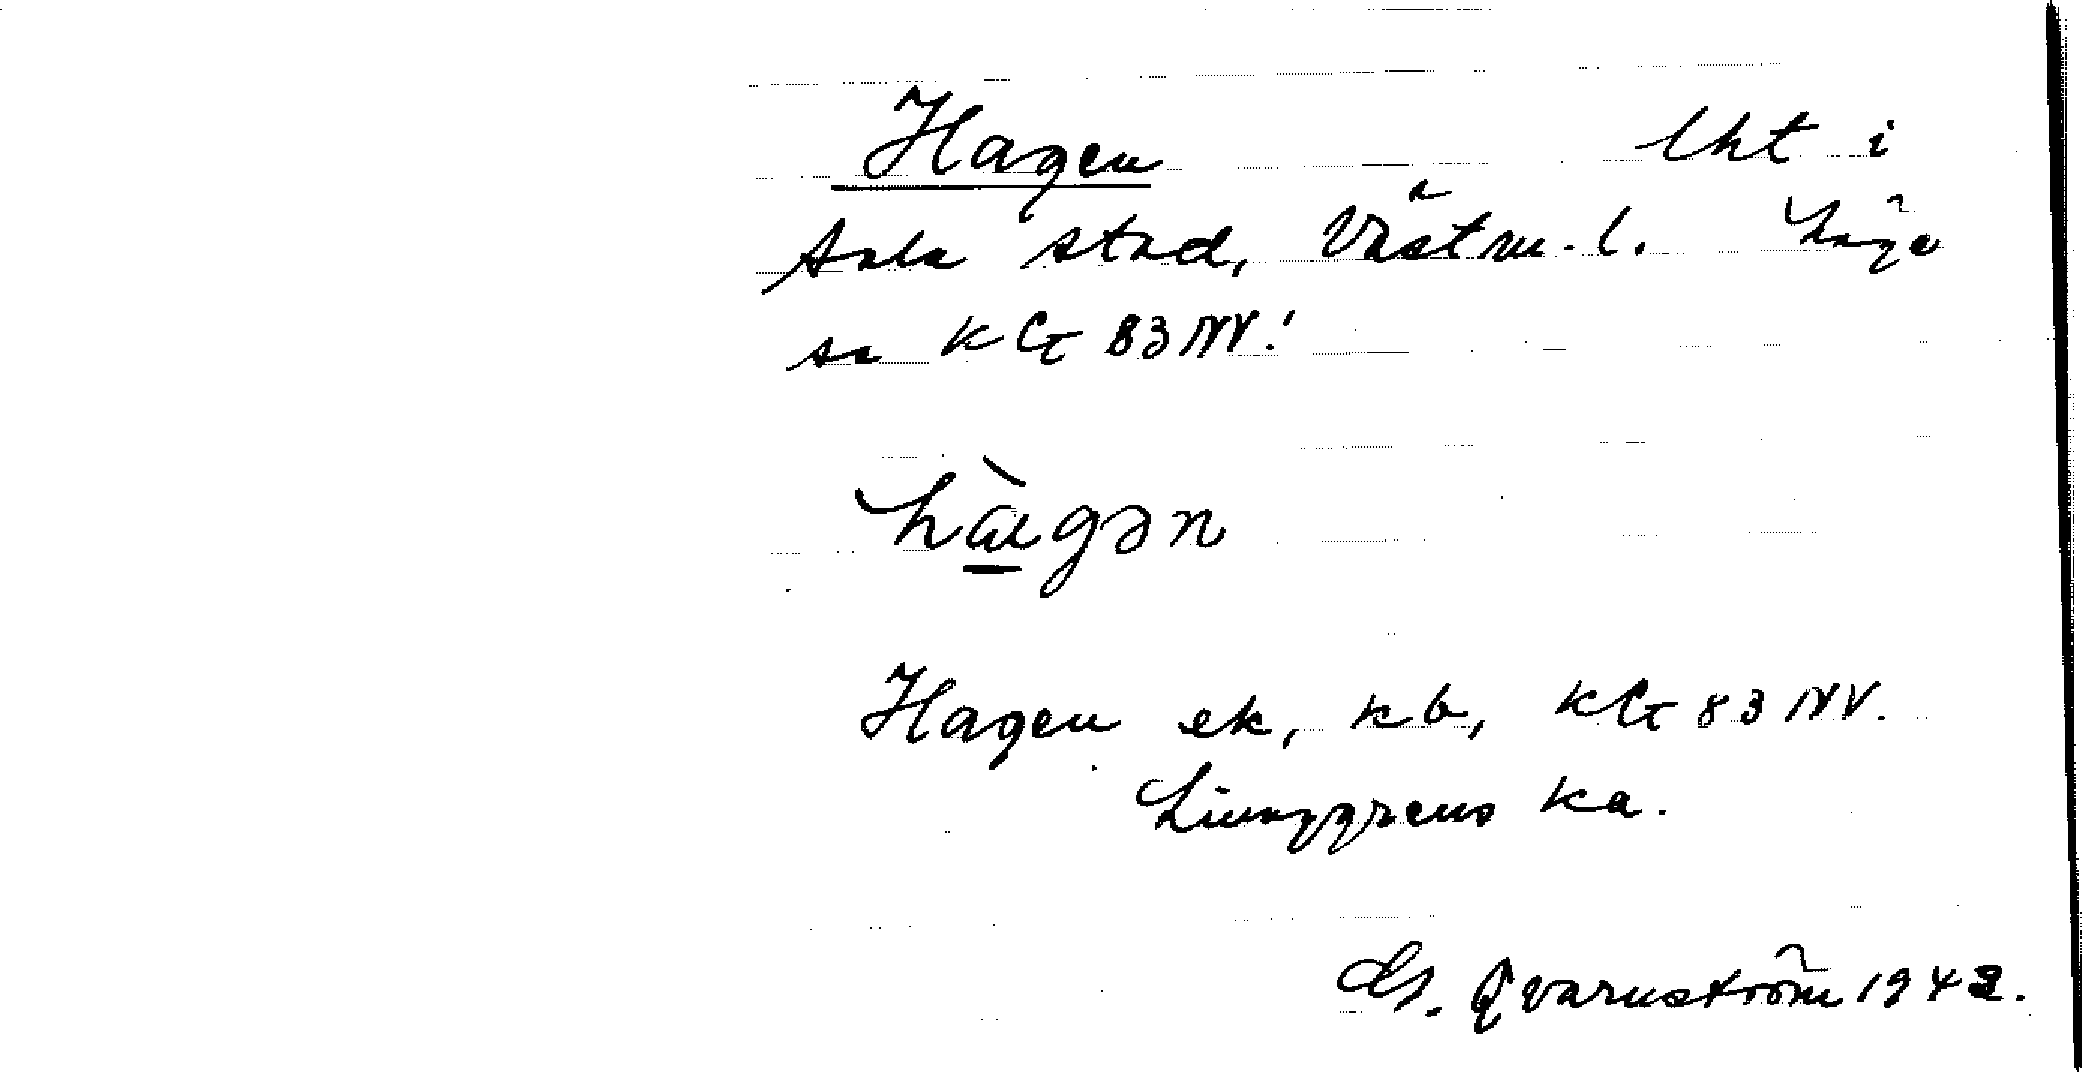 Hagen lht i
Sala stad, Västm. l. Läge
se KG 83 NV!
hàgən
Hagen ek, kb, KG 83 NV.
Ljunggrens ka.
G. Qvarnström 1942.